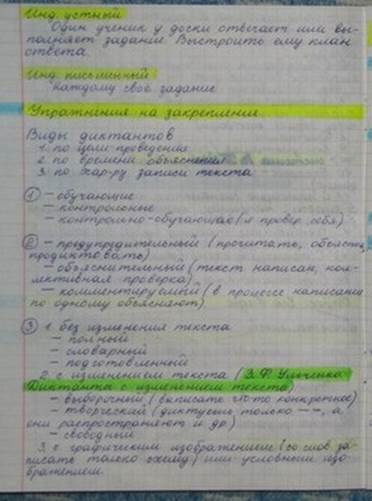 Инд. устный
Один ученик у доски отвечает или вы-
полняет задание. Выстроить ему план
ответа.
Инд. письменный
Каждому своё задание
Упражнения на закрепление
Виды диктантов
1. по цели проведения
2. по времени объяснения
3. по хар-ру записи текста
① – обучающие
– контрольные
– контрольно-обучающие (я провер. себя)
② – предупредительный (прочитать, объяснить,
продиктовать)
– объяснительный (текст написан, кол-
лективная проверка)
– комментируемый (в процессе написания
по одному объясняют).
③ 1. без изменения текста
– полный
– словарный
– подготовленный
2. с изменением текста (З.Ф. Ульченко
Диктанты с изменением текста)
– выборочный (выписать что-то конкретное)
– творческий (диктуешь только – –, а
они распространяют и др.)
– свободный
3. с графическим изображением (со слов за-
писать только схему) или условным изо-
бражением.